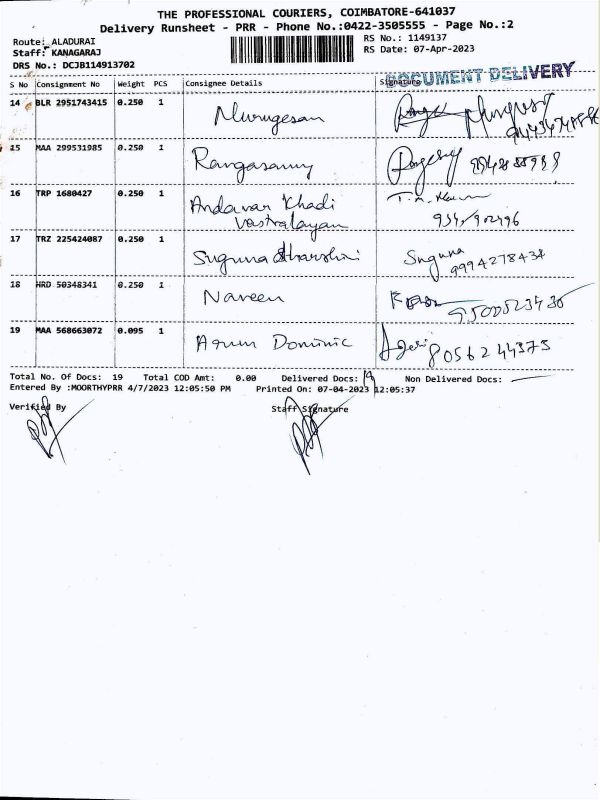 THE PROFESSIONAL COURIERS, COIMBATORE-641037
Delivery Runsheet - PRR - Phone No.:0422-3505555 - Page No.:2
Route: ALADURAI
RS No.: 1149137
Staff: KANAGARAJ
RS Date: 07-Apr-2023
DRS No.: DCJB114913702
DOCUMENT DELIVERY
S No Consignment No Weight PCS Consignee Details Signature
14 BLR 2951743415 0.250 1 Murugesan
15 MAA 299531985 0.250 1 Rangasamy
16 TRP 1680427 0.250 1 Andavar Khadi
Vastralayam
17 TRZ 225424087 0.250 1 Suguna dharshini Suguna
9994278434
18 HRD 50348341 0.250 1 Naveen
9500523436
19 MAA 568663072 0.095 1 Arun Dominic 8056244375
Total No. Of Docs: 19 Total COD Amt: 0.00 Delivered Docs: 19 Non Delivered Docs:
Entered By :MOORTHYPRR 4/7/2023 12:05:50 PM Printed On: 07-04-2023 12:05:37
Verified By Staff Signature